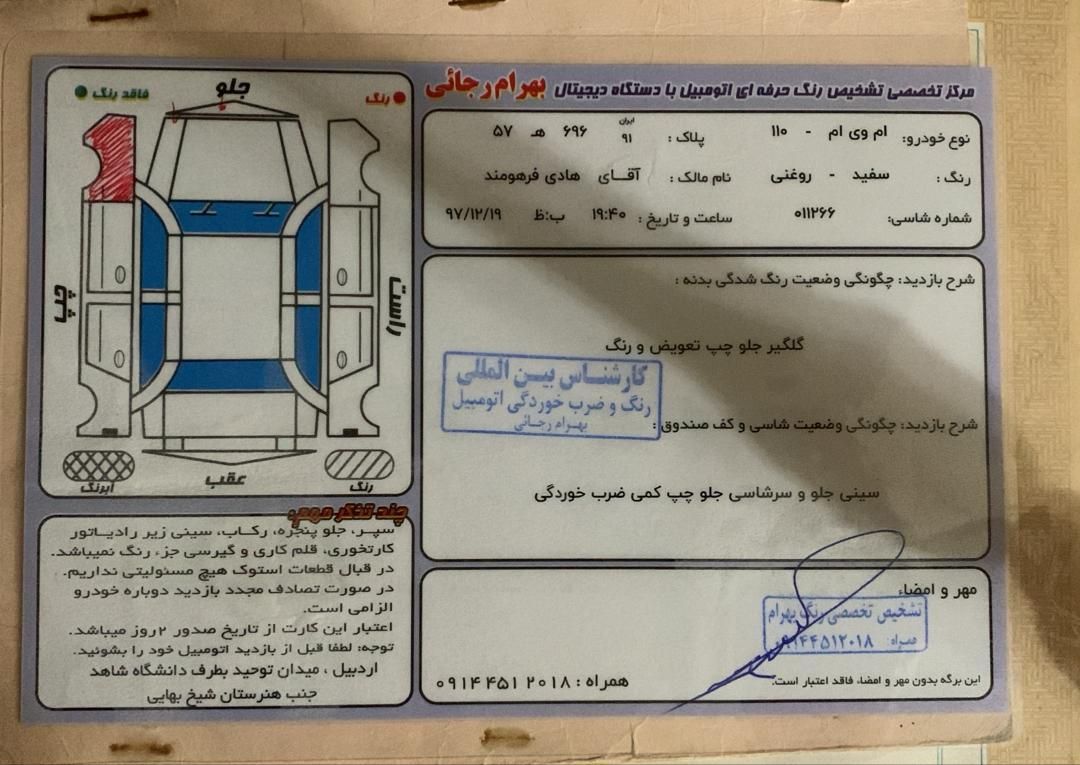 مرکز تخصصی تشخیص رنگ حرفه ای اتومبیل با دستگاه دیجیتال بهرام رجائی
نوع خودرو: ام وی ام - ۱۱۰ پلاک : ایران ۹۱ ۶۹۶ هـ ۵۷
رنگ : سفید - روغنی نام مالک : آقـــای هادی فرهومند
شماره شاسی: ۰۱۱۲۶۶ ساعت و تاریخ : ۱۹:۴۰ ب:ظ ۹۷/۱۲/۱۹
شرح بازدید: چگونگی وضعیت رنگ شدگی بدنه :
گلگیر جلو چپ تعویض و رنگ
کارشناس بین المللی
رنگ و ضرب خوردگی اتومبیل
بهرام رجائی
شرح بازدید: چگونگی وضعیت شاسی و کف صندوق :
سینی جلو و سرشاسی جلو چپ کمی ضرب خوردگی
مهر و امضاء
تشخیص تخصصی رنگ بهرام
همراه: ۰۹۱۴۴۵۱۲۰۱۸
این برگه بدون مهر و امضاء، فاقد اعتبار است.
همراه : ۰۹۱۴ ۴۵۱ ۲۰۱۸
رنگ
جلو
فاقد رنگ
راست
چپ
رنگ
عقب
آبرنگ
چند تذکر مهم:
سپـر، جلو پنجره، رکـاب، سینی زیر رادیــاتور
کارتخوری، قلم کاری و گیرسی جزء رنگ نمیباشد.
در قبال قطعات استوک هیچ مسئولیتی نداریم.
در صورت تصادف مجدد بازدید دوباره خودرو
الزامی است.
اعتبار این کارت از تاریخ صدور ۲ روز میباشد.
توجه: لطفا قبل از بازدید اتومبیل خود را بشوئید.
اردبیل ، میدان توحید بطرف دانشگاه شاهد
جنب هنرستان شیخ بهایی